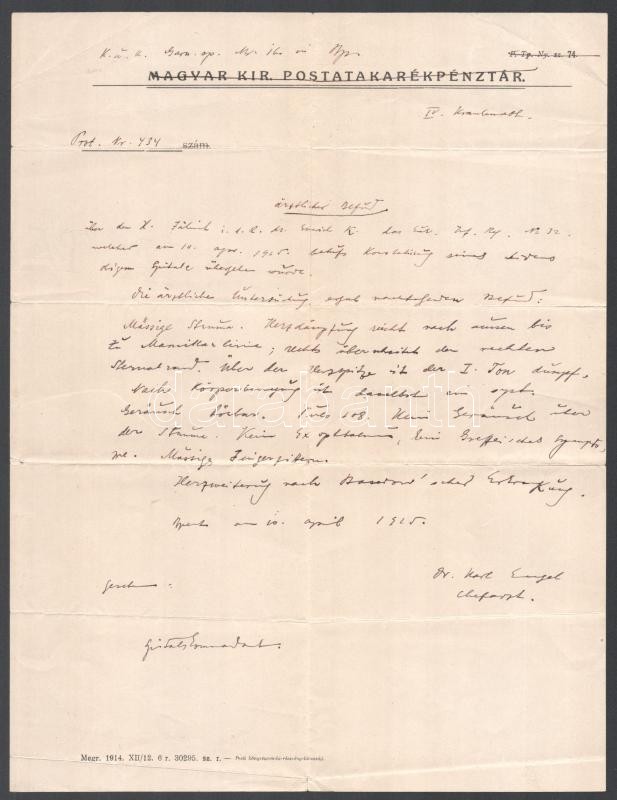 K. u. K. Garn. sp. Nr. 16. in Bp.
F. Tp. Ny. sz. 74.
MAGYAR KIR. POSTATAKARÉKPÉNZTÁR.
IV. Krankenabt.
Prot. Nr. 434 szám
ärztlicher Befund
über den H. Fähnrich i. d. R. dr. K. des Inf. Rg. No 32.
welcher am 10. apr. 1915. behufs Konstatierung seines Leidens
digem Spitale übergeben wurde.
Die ärztliche Untersuchung ergab nachstehenden Befund:
Mässige Struma. Herzdämpfung reicht nach aussen bis
zu Mamillarlinie; rechts überschreitet den rechten
Sternalrand. Über der Herzspitze ist der I. Ton dumpf,
nach Körperbewegung ist daselbst ein syst.
Geräusch hörbar. Puls 108. Kein Geräusch über
der Struma. Kein Exophtalmus, kein Graefeisches Sympto-
me. Mässige Fingerzittern.
Herzweiterung nach Basedow'scher Erkrankung.
am 10. april 1915.
Dr. Karl Engel
Chefarzt.
Gesehen:
Spitalskommandant.
darabanth
Megr. 1914. XII/12. 6 r. 30295. sz. r. — Pesti könyvnyomda-részvény-társaság.